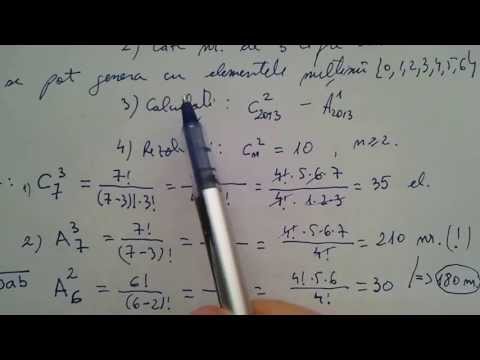 2) Câte nr. de 3 cifre
se pot genera cu elementele mulțimii {0,1,2,3,4,5,6}
3) Calculați : C²₂₀₁₃ − A¹₂₀₁₃
4) : Cₙ² = 10 , n≥2.
: 1) C₇³ = 7!/((7-3)!·3!) = = 4!·5·6·7/(4!·1·2·3) = 35 el.
2) A₇³ = 7!/(7-3)! = = 4!·5·6·7/4! = 210 nr. (!)
0ab A₆² = 6!/(6-2)! = = 4!·5·6/4! = 30 |=> 180 nr